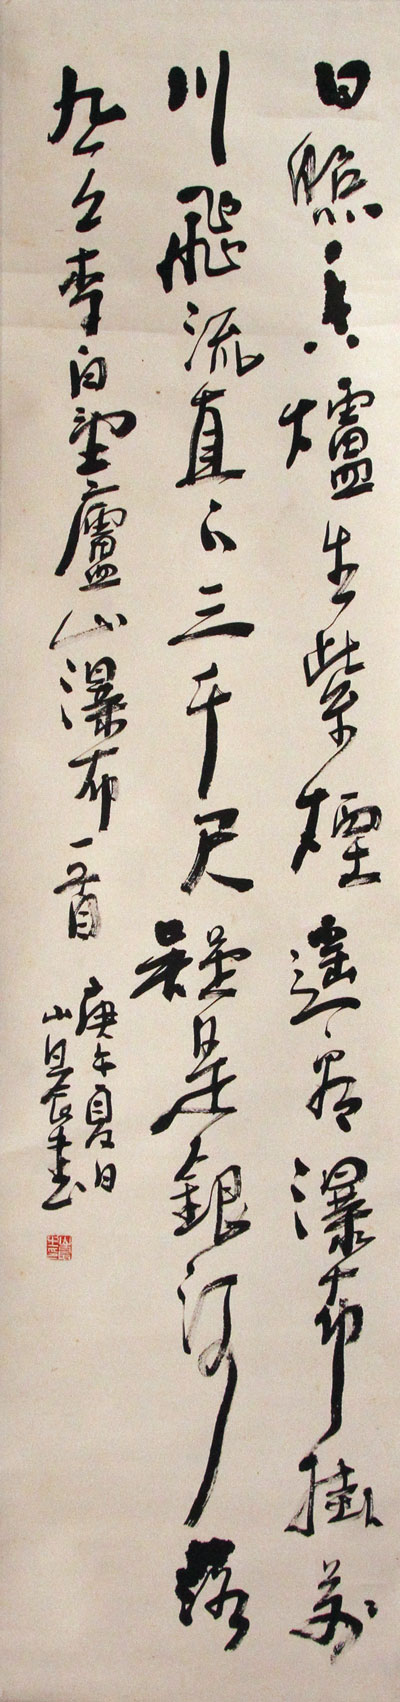 日照香爐生紫煙遙看瀑布掛前
川飛流直下三千尺疑是銀河落
九天李白望廬山瀑布一首
庚午夏日
書